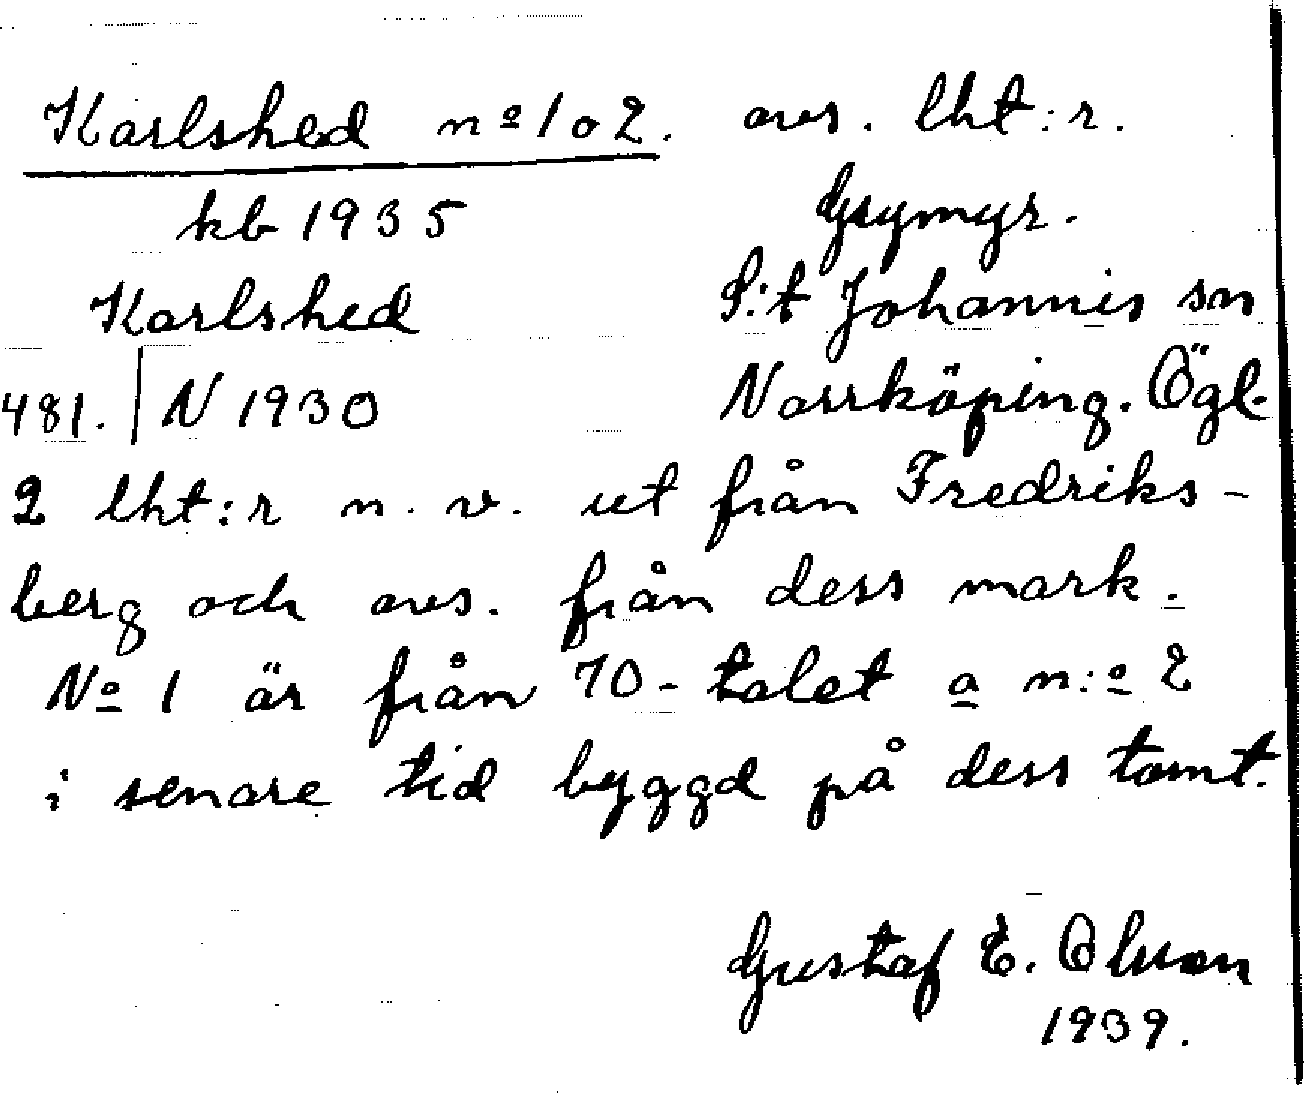 Karlshed nº 1 o 2. avs. lht:r.
kb 1935 Grymyr.
Karlshed S:t Johannis sn
481. N 1930 Norrköping. Ögl.
2 lht:r n. v. ut från Fredriks-
berg och avs. från dess mark.
Nº 1 är från 70-talet o n:º 2
i senare tid byggd på dess tomt.
Gustaf E. Olsson
1939.